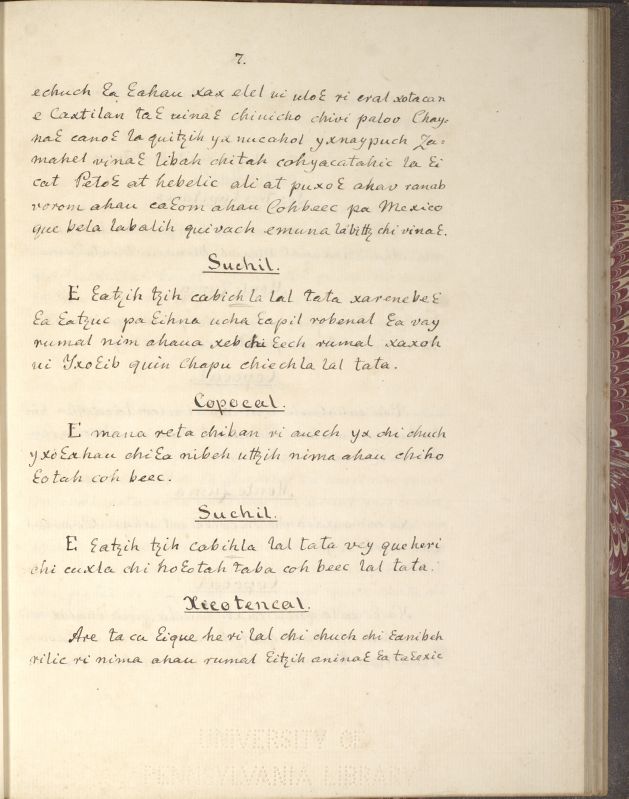 7.
echuch Ɛa Ɛahau xax elel ui uloƐ ri eral xotacan
e Caxtilan taƐ uinaƐ chinicho chivi palov Chay=
naƐ canoƐ la quitzih yx nucahol yxnaypuch Za=
mahel vinaƐ libah chitah cohyacatahic la Ɛi
cat PetoƐ at hebelic ali at puxoƐ ahav ranab
vorom ahau caƐom ahau Cohbeec pa Mexico
que bela labalih quivach emuna chi vinaƐ.
Suchil.
E Ɛatzih tzih cabichla lal tata xarenebeƐ
Ɛa Ɛatzuc pa Ɛihna ucha Ɛapil robenal Ɛa vay
rumal nim ahaua xeb chi Ɛech rumal xaxoh
ui YxoƐib quin Chapu chiechla lal tata.
Copocal.
E mana reta chiban ri auech yx chi chuch
yxoƐxhau chiƐa nibeh utzih nima ahau chiho
Ɛotah coh beec.
Suchil.
E Ɛatzih tzih cabihla lal tata vay queheri
chi cuxla chi hoƐotah taba coh beec lal tata.
Xicotencal.
Are ta ca Ɛique he ri lal chi chuch chi Ɛanibeh
rilic ri nima ahau rumal Ɛitzih aninaƐ Ɛa taƐexic
UNIVERSITY OF
PENNSYLVANIA LIBRARY